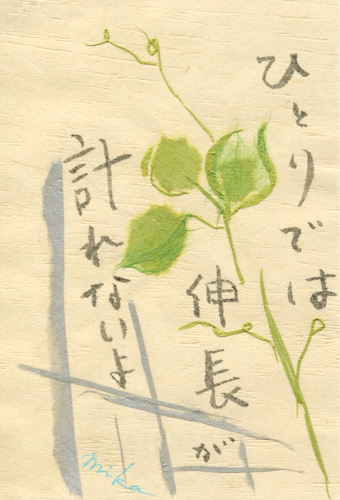 ひとりでは
伸長が
計れないよ
mika